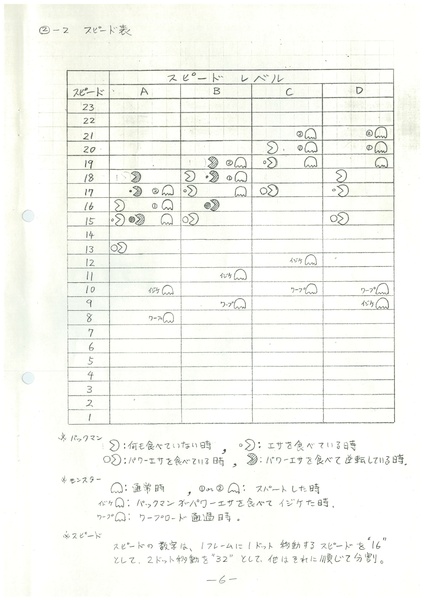 ②-2 スピード表
スピード レベル
スピード A B C D
23
22
21 ② ④
20 ① ①
19 ②
18 ①
17 ②
16 ①
15
14
13
12 イジケ
11 イジケ
10 イジケ ワープ ワープ
9 ワープ イジケ
8 ワープ
7
6
5
4
3
2
1
※パックマン
:何も食べていない時, :エサを食べている時
:パワーエサを食べている時, :パワーエサを食べて逆転している時.
※モンスター
:通常時, ① or ② : スパートした時
イジケ : パックマンがパワーエサを食べてイジケた時.
ワープ : ワープロード通過時。
※スピード
スピードの数字は、1フレームに1ドット移動するスピードを"16"
として、2ドット移動を"32"として、他はそれに順じて分割。
—6—